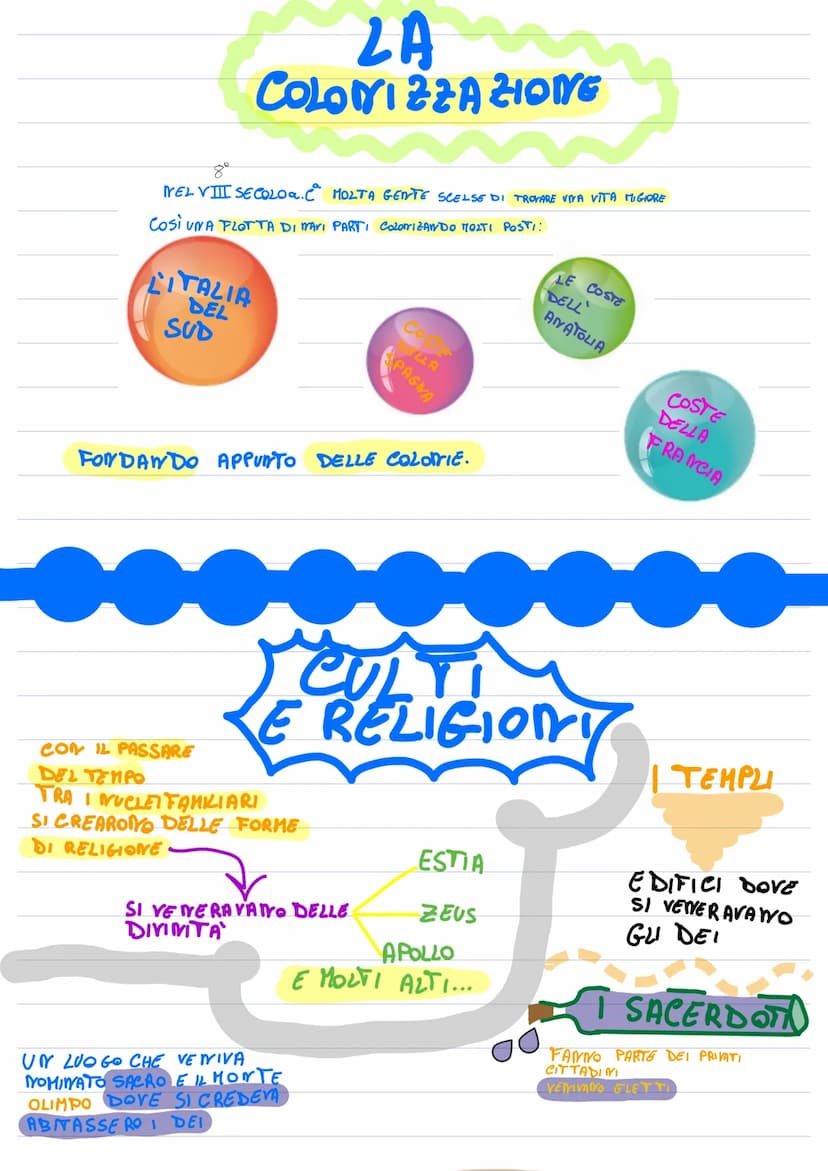 LA
COLONIZZAZIONE
8°
NEL VIII SECOLO a.C. MOLTA GENTE SCELSE DI TROVARE UNA VITA MIGIORE
COSÌ UNA FLOTTA DI NAVI PARTI COLONIZANDO MOLTI POSTI:
L'ITALIA
DEL
SUD
COSTE
DELLA
SPAGNA
LE COSTE
DELL'
ANATOLIA
COSTE
DELLA
FRANCIA
FONDANDO APPUNTO DELLE COLONIE.
CULTI
E RELIGIONI
CON IL PASSARE
DEL TEMPO
TRA I NUCLEI FAMILIARI
SI CREARONO DELLE FORME
DI RELIGIONE
SI VENERAVANO DELLE
DIVINITÀ
ESTIA
ZEUS
APOLLO
E MOLTI ALTI...
I TEMPLI
EDIFICI DOVE
SI VENERAVANO
GLI DEI
I SACERDOTI
FANNO PARTE DEI PRIVATI
CITTADINI
VENIVANO ELETTI
UN LUOGO CHE VENIVA
NOMINATO SACRO E IL MONTE
OLIMPO DOVE SI CREDEVA
ABITASSERO I DEI